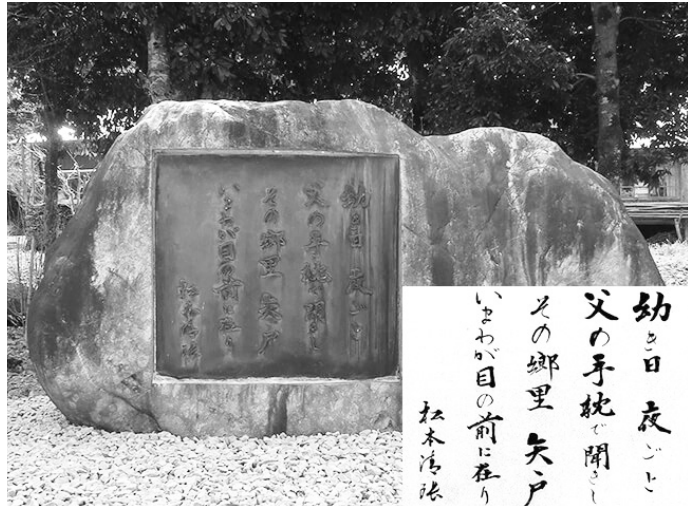 幼き日 夜ごと
父の手枕で聞きし
その郷里 矢戸
いまわが目の前に在り
松本清張
幼き日 夜ごと
父の手枕で聞きし
その郷里 矢戸
いまわが目の前に在り
松本清張